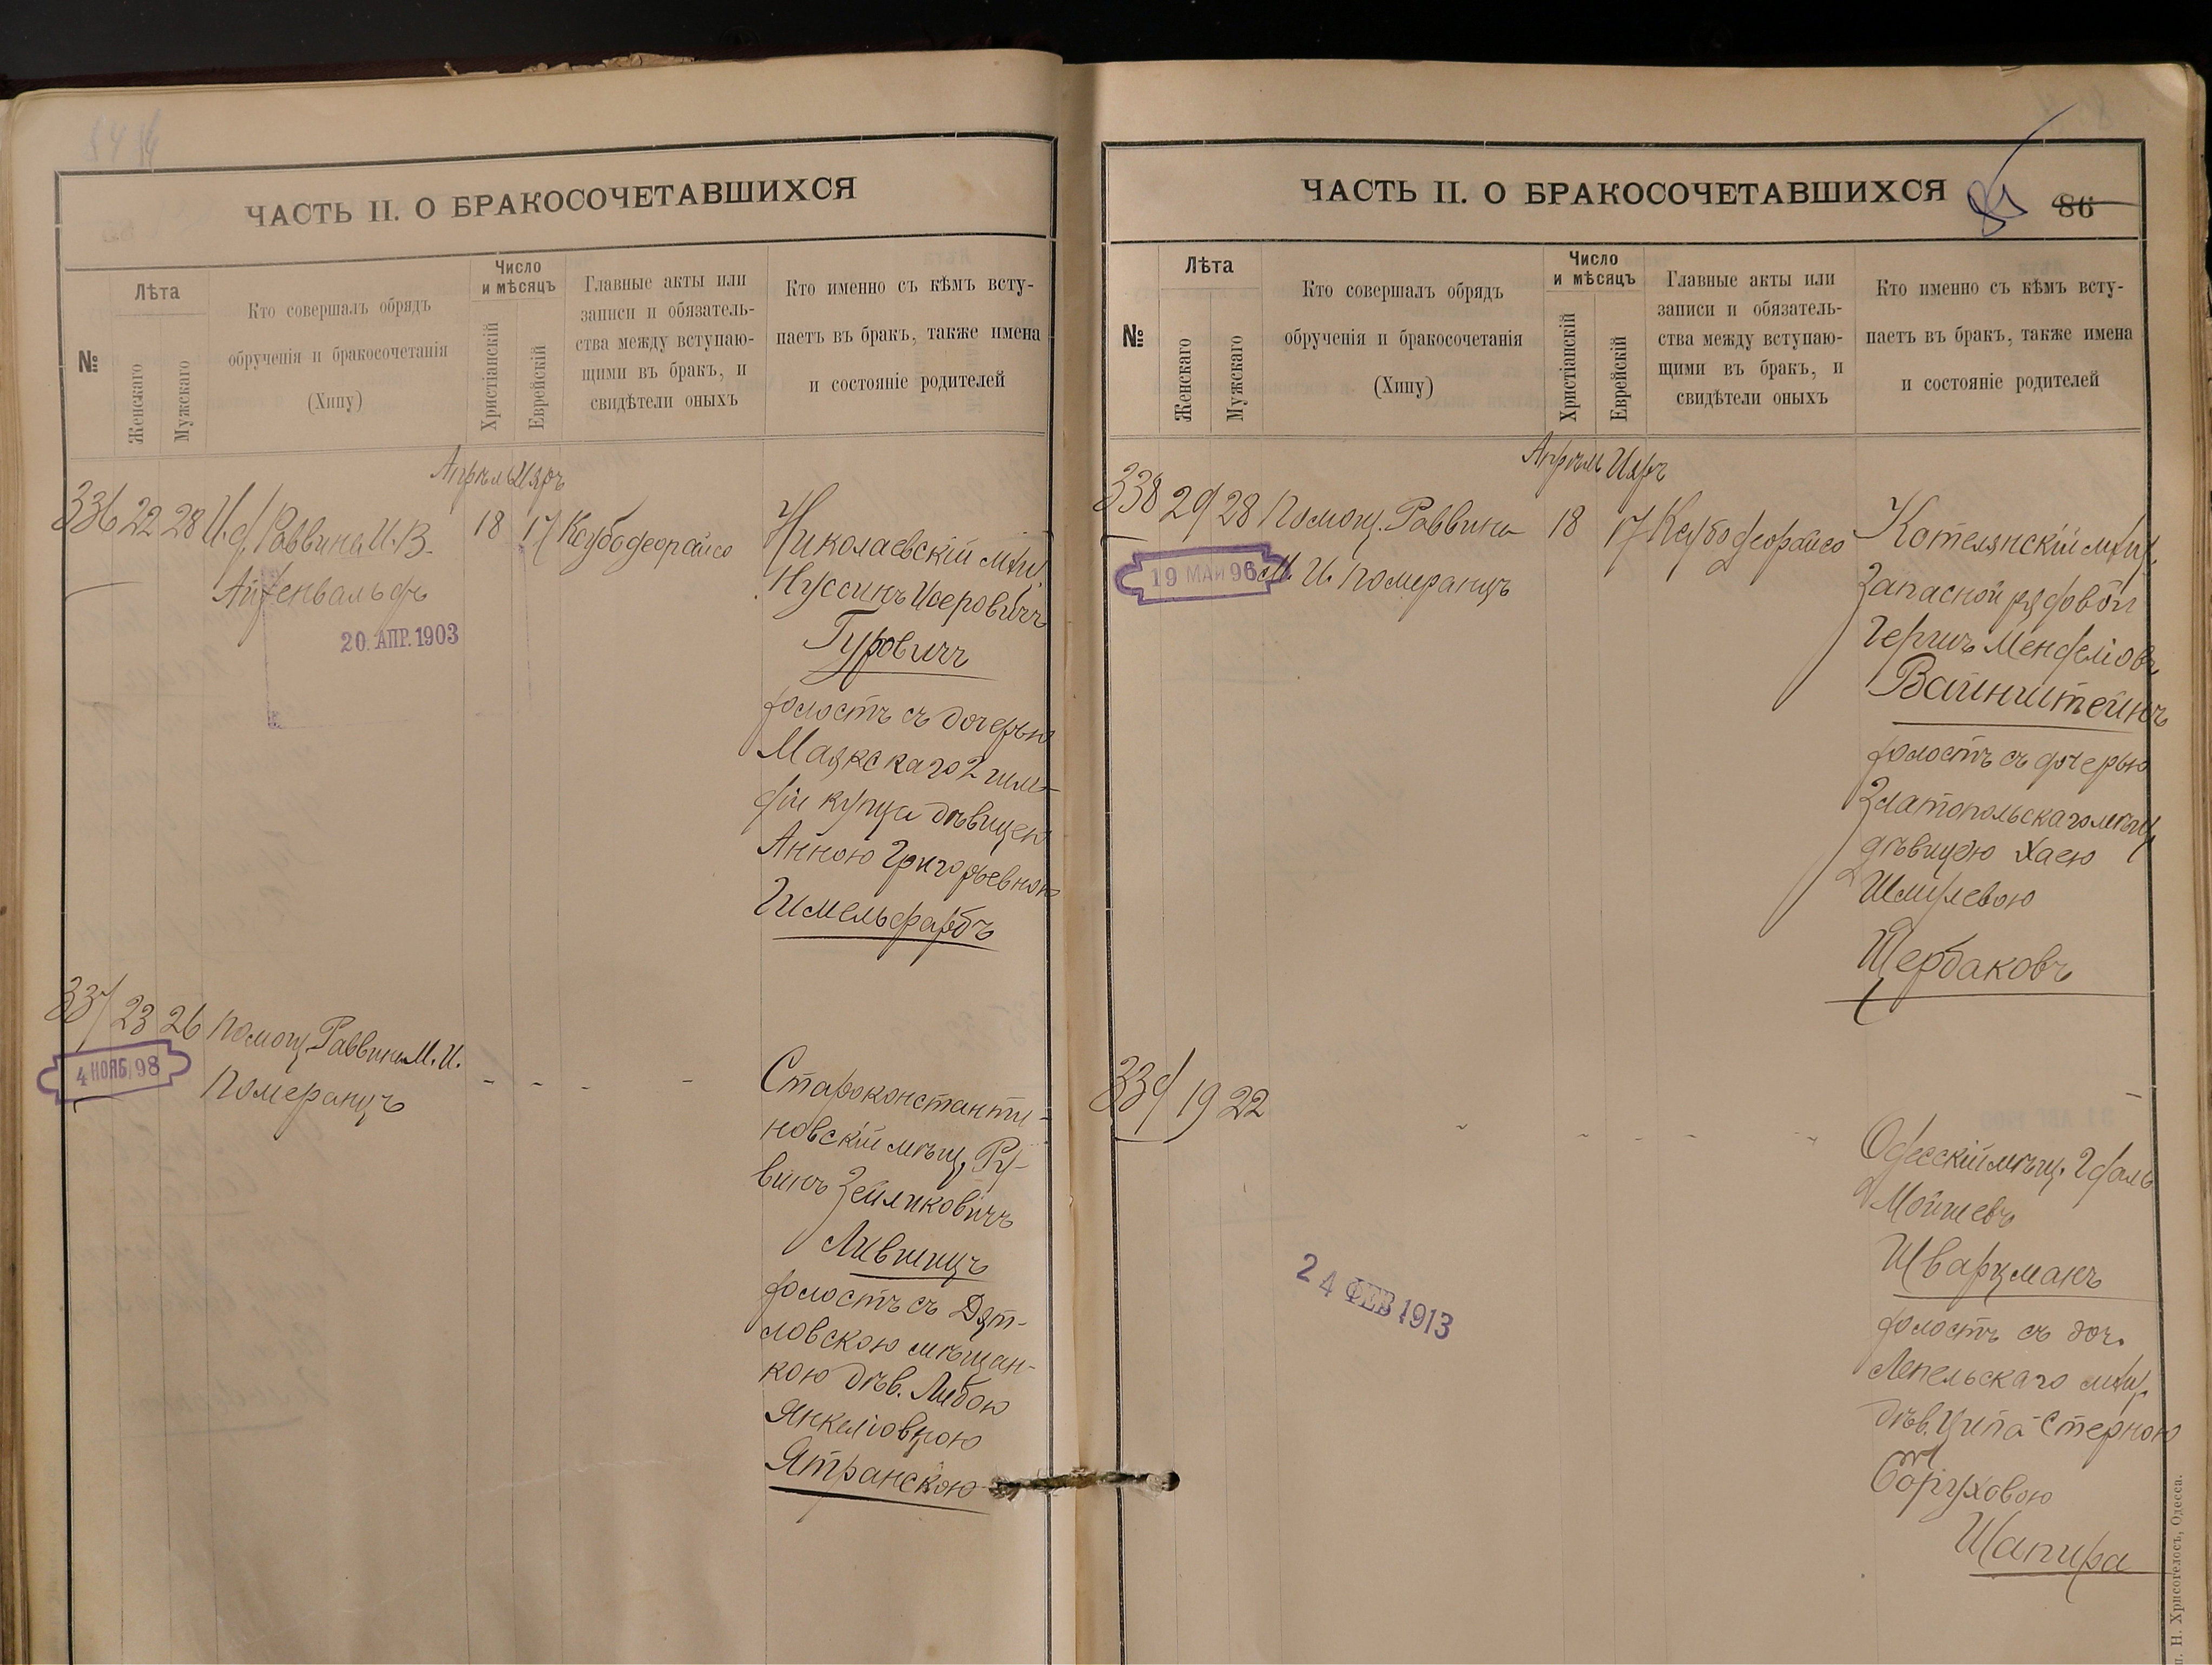 ЧАСТЬ II. О БРАКОСОЧЕТАВШИХСЯ
№
Лѣта
Женскаго
Мужскаго
Кто совершалъ обрядъ
обрученія и бракосочетанія
(Хипу)
Число
и мѣсяцъ
Христіанскій
Еврейскій
Главные акты или
записи и обязатель-
ства между вступаю-
щими въ бракъ, и
свидѣтели оныхъ
Кто именно съ кѣмъ всту-
паетъ въ бракъ, также имена
и состояніе родителей
Апрѣль Ияръ
336 22 28 И.д. Раввина И. В. 18 17
20. АПР. 1903
Николаевскій мѣщ.
Нуссинъ Исеровичъ
Гуровичъ
холостъ съ дочерью
Маякскаго 2 гиль-
діи купца дѣвицею
Анною Григорьевною
Гимельфарбъ
337 23 26 Помощ. Раввина М. И.
Померанцъ
4 НОЯБ. 98
Староконстанти-
новскій мѣщ. Ру-
винъ Зейликовичъ
Лившицъ
холостъ съ Дят-
ловскою мѣщан-
кою дѣв. Либою
Янкеліовною
Ятранскою
ЧАСТЬ II. О БРАКОСОЧЕТАВШИХСЯ
86
№
Лѣта
Женскаго
Мужскаго
Кто совершалъ обрядъ
обрученія и бракосочетанія
(Хипу)
Число
и мѣсяцъ
Христіанскій
Еврейскій
Главные акты или
записи и обязатель-
ства между вступаю-
щими въ бракъ, и
свидѣтели оныхъ
Кто именно съ кѣмъ всту-
паетъ въ бракъ, также имена
и состояніе родителей
Апрѣль Ияръ
338 29 28 Помощ. Раввина 18 17
М. И. Померанцъ
19 МАЙ 96
Котелянскій мѣщ.
запасной рядовой
Гершъ Менделіовъ
Вайнштейнъ
холостъ съ дочерью
Златопольскаго мѣщ.
дѣвицею Хаею
Шмулевою
Щербаковъ
339 19 22
24 ФЕВ 1913
Одесскій мѣщ. Гдаль
Мойшевъ
Шварцманъ
холостъ съ доч.
Лепельскаго мѣщ.
дѣв. Ципа-Стерною
Боруховою
Шапира
Н. Хрисогелосъ, Одесса.